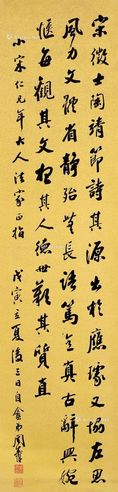 宋徵士陶靖節詩其源出於應璩又協左思
風力文體省靜殆無長語篤意真古辭興婉
愜每觀其文想其人德世歎其質直
小宋仁兄年大人法家正指 戊寅立夏後三日自盦弟周